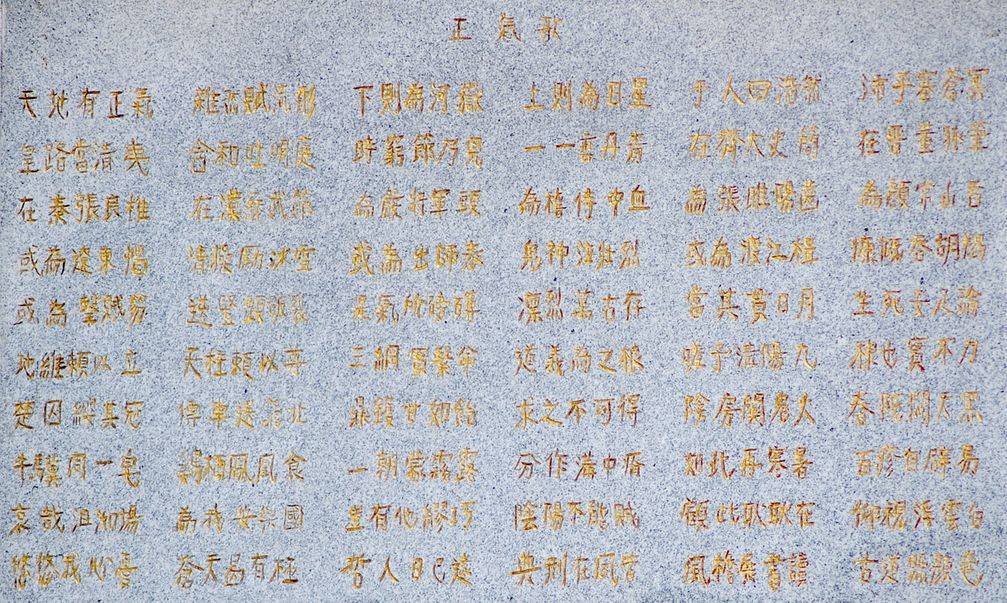 正氣歌
天地有正氣 雜然賦流形 下則為河嶽 上則為日星 于人曰浩然 沛乎塞蒼冥
皇路當清夷 含和吐明庭 時窮節乃見 一一垂丹青 在齊太史簡 在晉董狐筆
在秦張良椎 在漢蘇武節 為嚴將軍頭 為嵇侍中血 為張睢陽齒 為顏常山舌
或為遼東帽 清操厲冰雪 或為出師表 鬼神泣壯烈 或為渡江楫 慷慨吞胡羯
或為擊賊笏 逆豎頭破裂 是氣所磅礴 凜烈萬古存 當其貫日月 生死安足論
地維賴以立 天柱賴以尊 三綱實繫命 道義為之根 嗟予遘陽九 隸也實不力
楚囚纓其冠 傳車送窮北 鼎鑊甘如飴 求之不可得 陰房闃鬼火 春院閟天黑
牛驥同一皂 雞棲鳳凰食 一朝蒙霧露 分作溝中瘠 如此再寒暑 百沴自辟易
哀哉沮洳場 為我安樂國 豈有他繆巧 陰陽不能賊 顧此耿耿在 仰視浮雲白
悠悠我心憂 蒼天曷有極 哲人日已遠 典刑在夙昔 風簷展書讀 古道照顏色